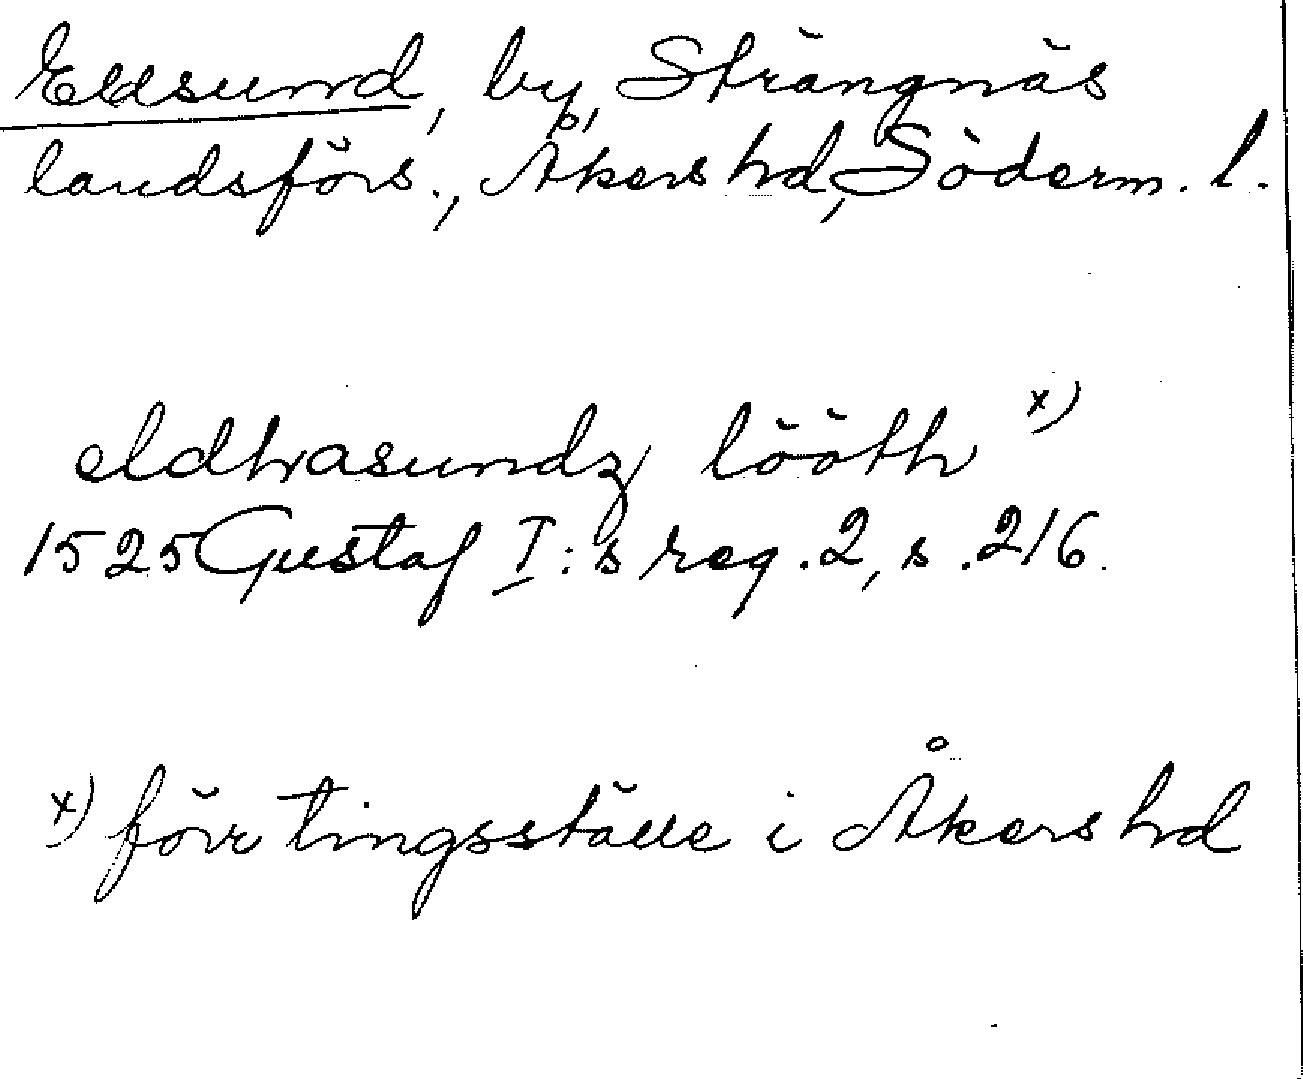 Eldsund, by, Strängnäs
landsförs., Åkers hd, Söderm. l.
eldhasundz lööth x)
1525 Gustaf I:s reg. 2, s. 216.
x) förr tingsställe i Åkers hd